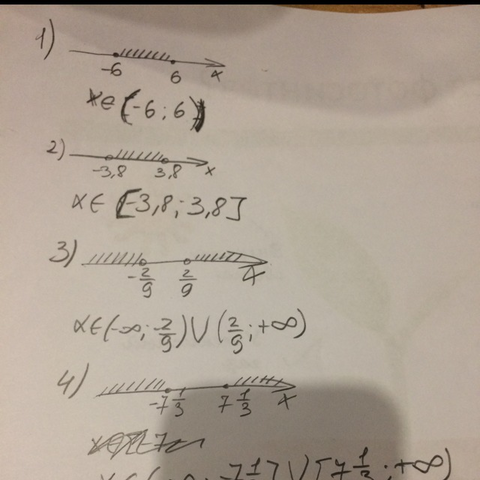 1)
-6 6 x
x∈(-6; 6)
2)
-3,8 3,8 x
x∈[-3,8; 3,8]
3)
-2/9 2/9 x
x∈(-∞; -2/9)∪(2/9; +∞)
4)
-7 1/3 7 1/3 x
x∈(-∞; -7 1/3]∪[7 1/3; +∞)